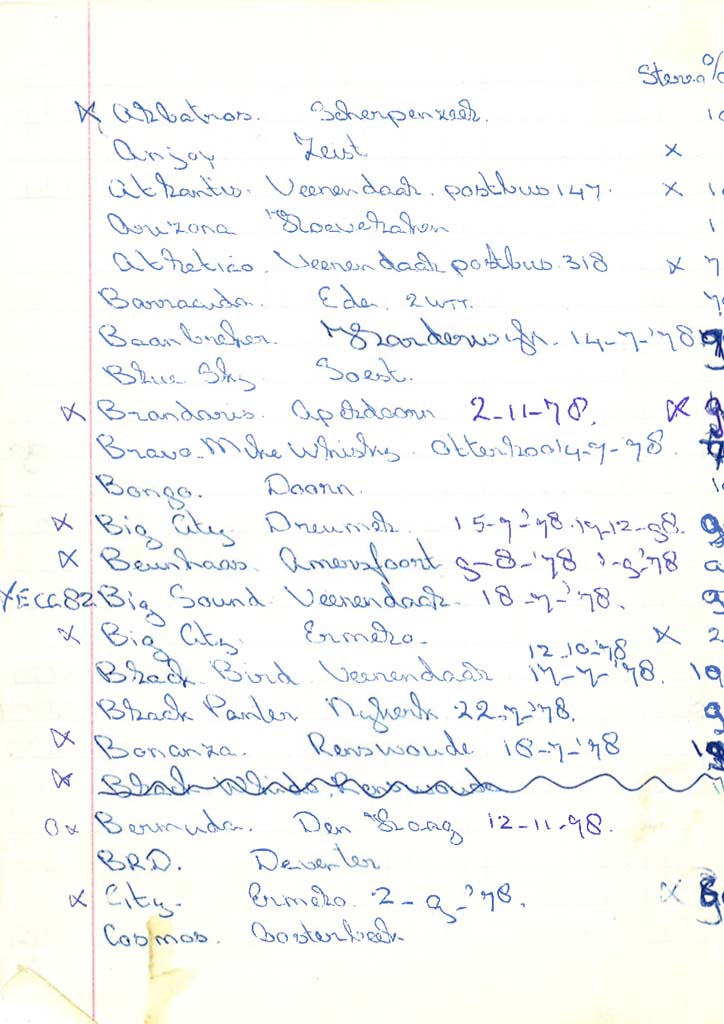 Stereo %
x Albatros. Scherpenzeel. 10
Anjoy Zeist x
Atlantis. Veenendaal. postbus 147. x 1
Arizona Hoevelaken 1
Atletico. Veenendaal postbus 318 x 7
Barracuda. Ede. 2 WTT. 7
Baanbreker. Harderwijk. 14-7-'78 9
Blue Sky Soest.
x Brandaris. Apeldoorn 2-11-78. x 9
Bravo Mike Whisky. Otterloo 14-7-78.
Bongo. Doorn. 1
x Big City Dreumel. 15-7-'78. 9
x Beunhaas. Amersfoort 9-8-'78
YECG82 Big Sound. Veenendaal. 18-7-'78. 9
x Big City. Ermelo. x 2
12.10-'78
Black Bird Veenendaal 17-7-'78. 19
Black Panter Nijkerk 22-7-'78. 9
x Bonanza. Renswoude 18-7-'78 19
x Renswoude
0x Bermuda. Den Haag 12-11-98.
BRD. Deventer
x City. Ermelo. 2-9-'78. x
Cosmos. Oosterbeek